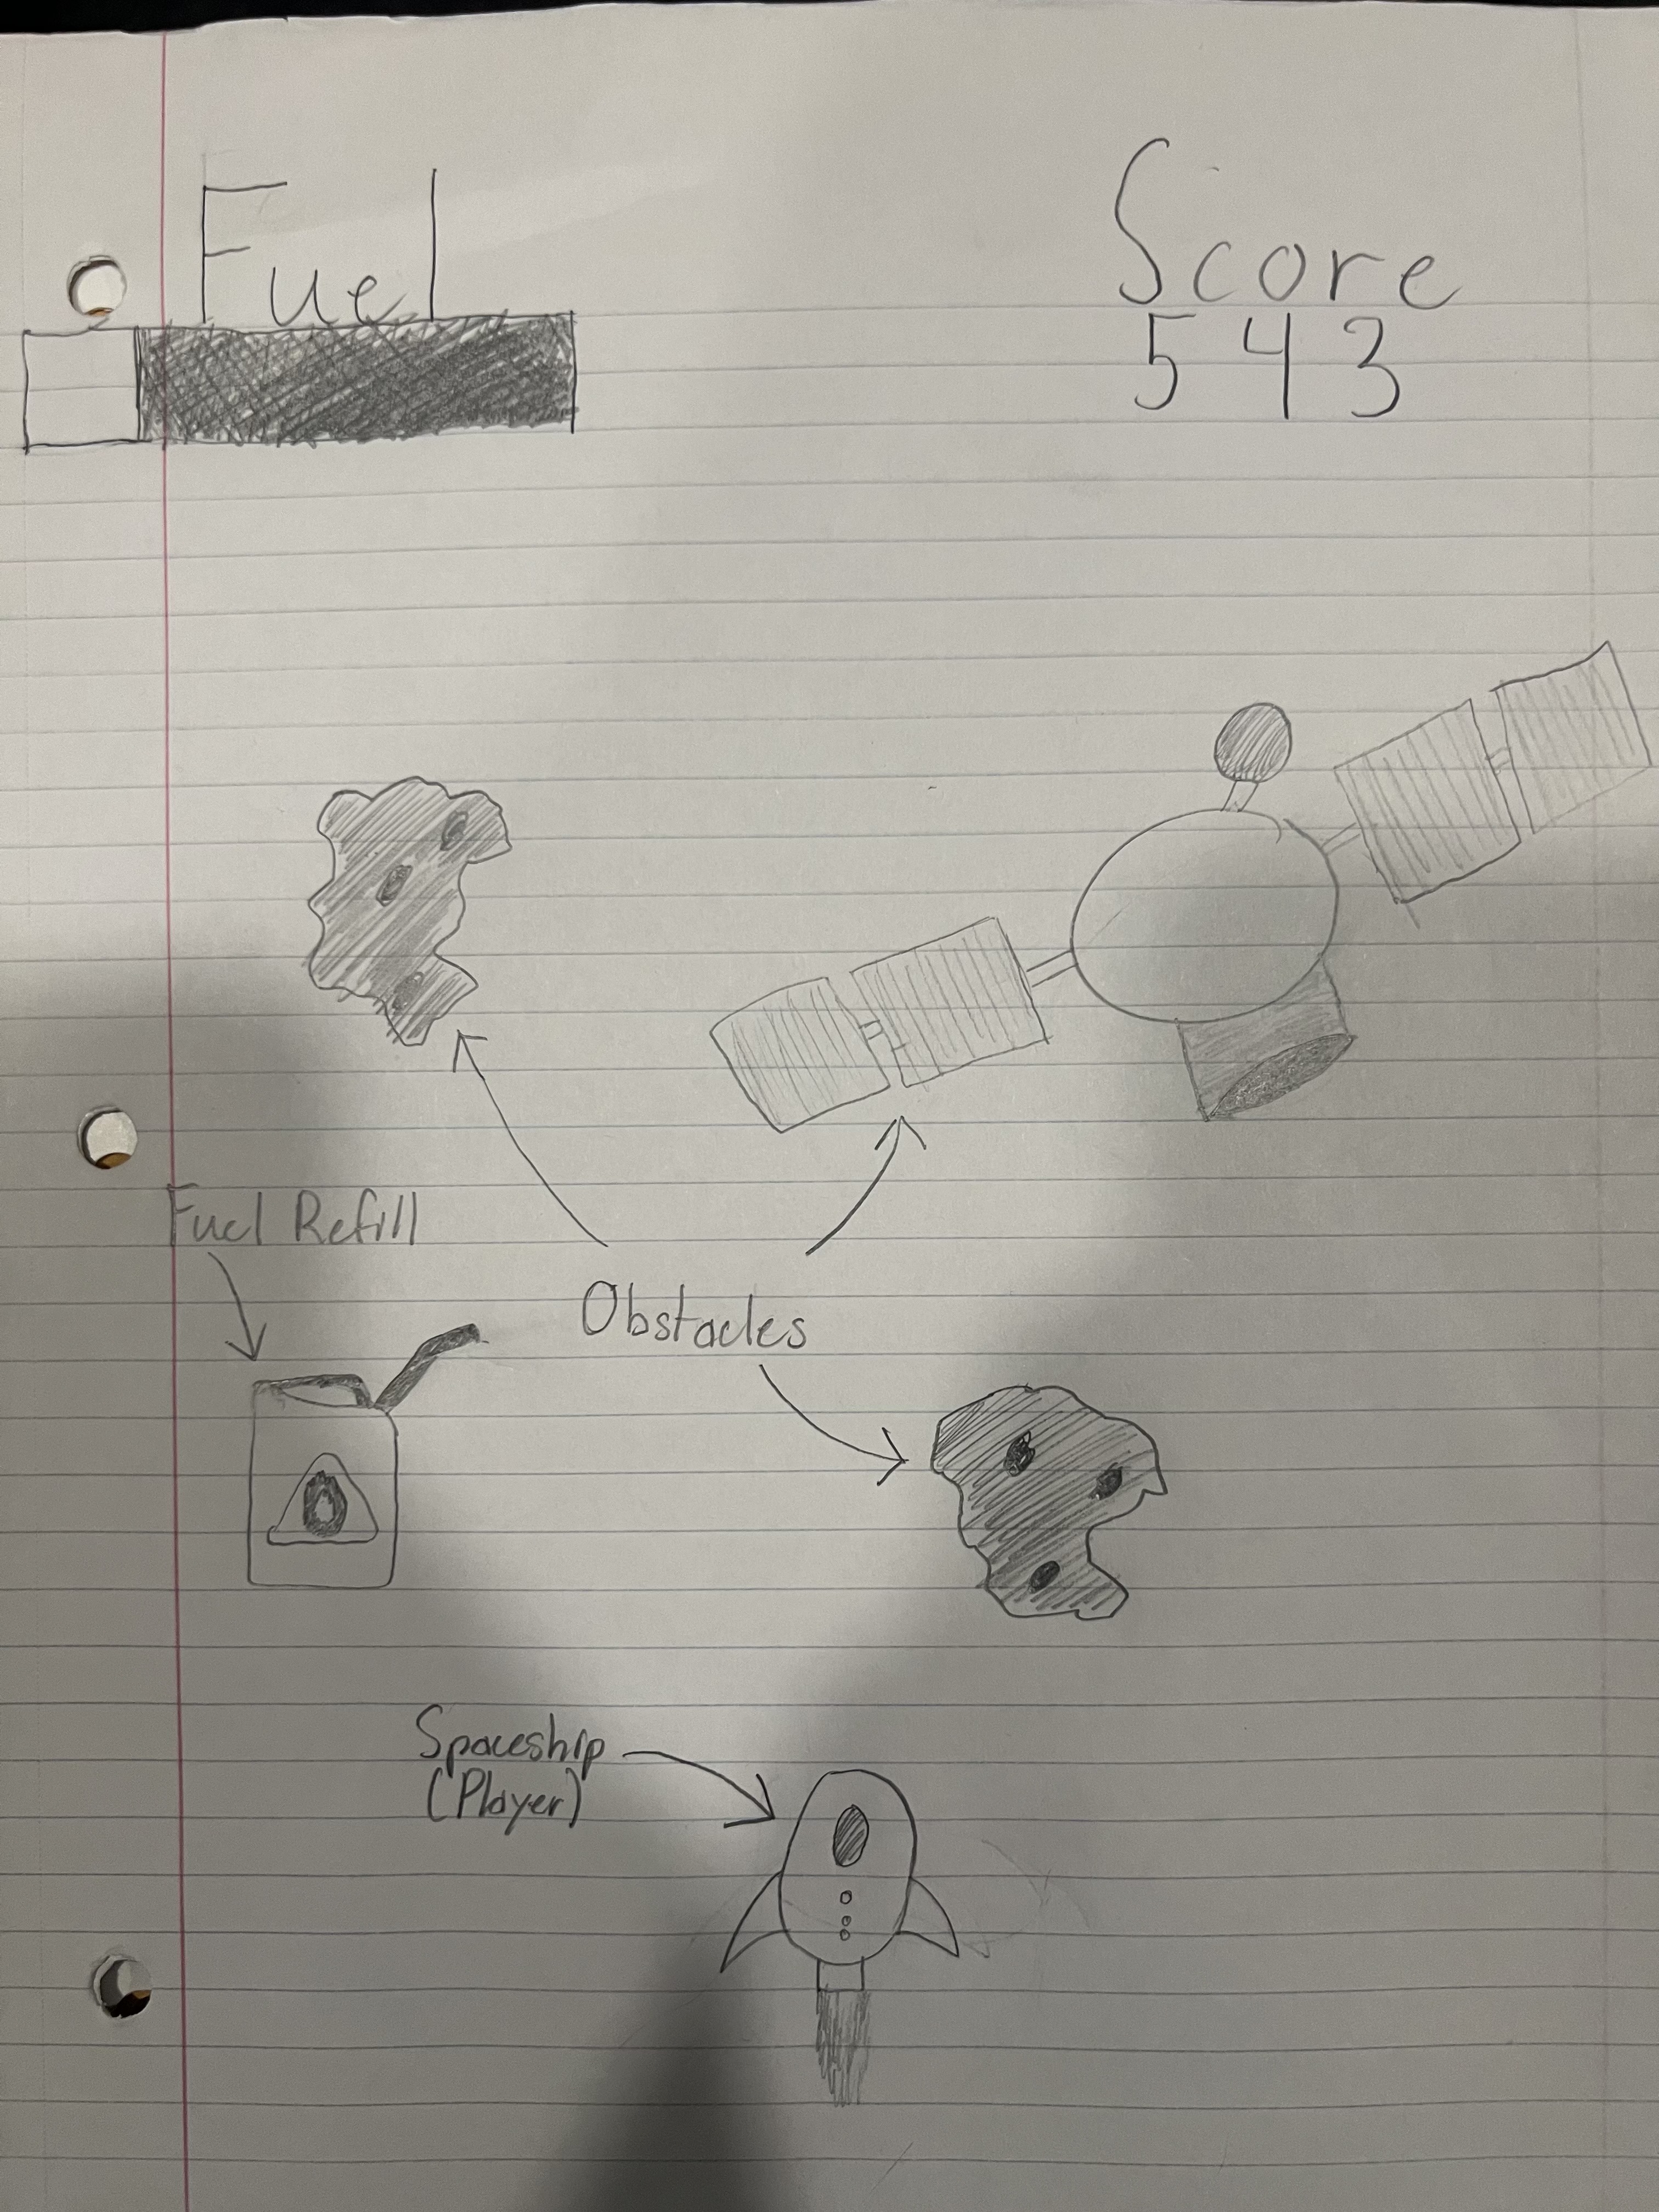 Fuel
Score
543
Fuel Refill
Obstacles
Spaceship
(Player)